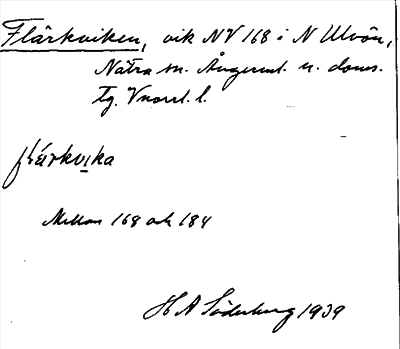 Flärkviken, vik NV 168 i N Ulvön,
Nätra sn. Ångerml. n. doms.
tg. Vnorrl. l.
flárkvika
Mellan 168 och 184
H A Söderberg 1939